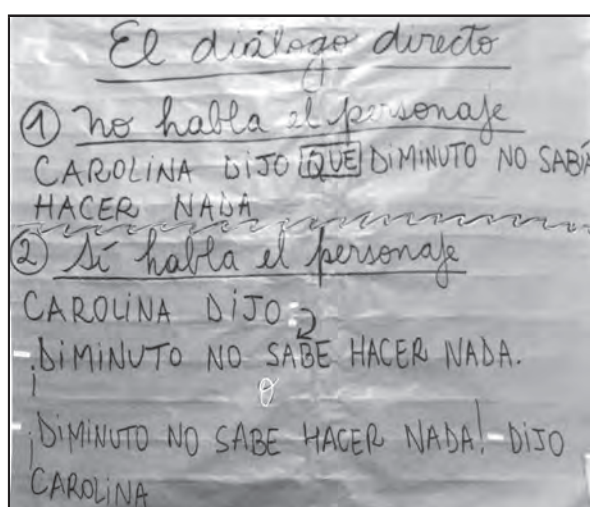 El diálogo directo
① No habla el personaje
CAROLINA DIJO QUE DIMINUTO NO SABÍA
HACER NADA
② Sí habla el personaje
CAROLINA DIJO:
-¡DIMINUTO NO SABE HACER NADA.
O
-¡DIMINUTO NO SABE HACER NADA!-DIJO
CAROLINA